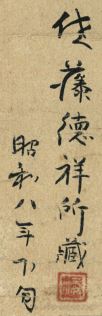 佐藤德祥所藏
昭和八年下旬